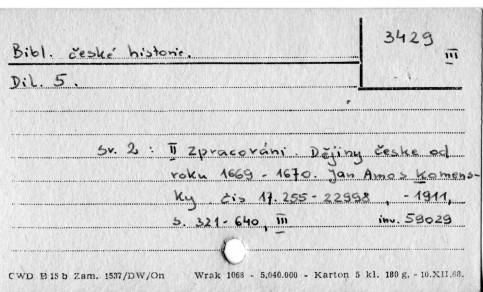 3429
III
Bibl. české historie.
Díl. 5.
sv. 2 : II zpracování. Dějiny české od
roku 1669 - 1670. Jan Amos Komens-
ký čís 17.255 - 22998 , - 1911,
s. 321 - 640, III inv. 59029
CWD B 15 b Zam. 1537/DW/On Wrak 1068 - 5,040.000 - Karton 5 kl. 180 g. - 10.XII.68.